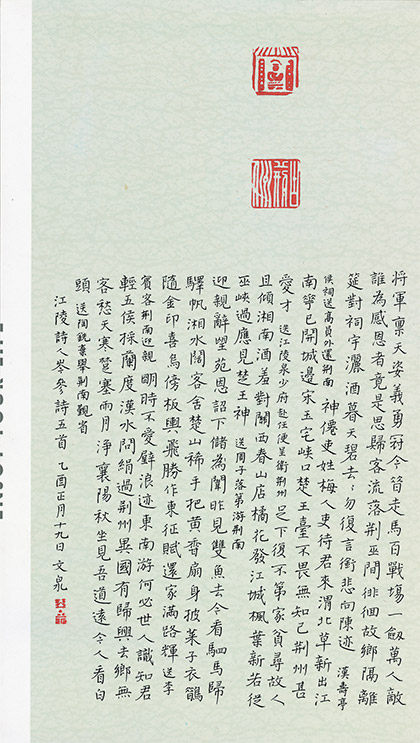 將軍禀天姿義勇冠今昔走馬百戰場一劔萬人敵
誰為感恩者竟是思歸客流落荊巫間徘徊故鄉隔離
筵對祠宇灑酒暮天碧去々勿復言銜悲向陳迹 漢壽亭
侯祠送高員外還荊南 神僊吏姓梅人吏待君來渭北草新出江
南華已開城邊宋玉宅峽口楚王臺不畏無知己荊州甚
愛才 送江陵泉少府赴任便呈衛荊州 足下復不第家貧尋故人
且傾湘南酒羞對關西春山店橘花發江城楓葉新若從
巫峽過應見楚王神 送周子落第游荊南
迎親辭望苑恩詔下儲闈昨見雙魚去今看駟馬歸
驛帆湘水闊客舍楚山稀手把黃香扇身披萊子衣鵲
隨金印喜烏傍板輿飛勝作東征賦還家滿路輝 送李
賓客荊南迎親 明時不愛璧浪迹東南游何必世人識知君
輕五侯採蘭度漢水問絹過荊州異國有歸興去鄉無
客愁天寒楚塞雨月淨襄陽秋坐見吾道遠令人看白
頭 送陶銑棄舉荊南覲省
江陵詩人岑參詩五首 乙酉正月十九日 文泉
ENJOY YOUR LIFE